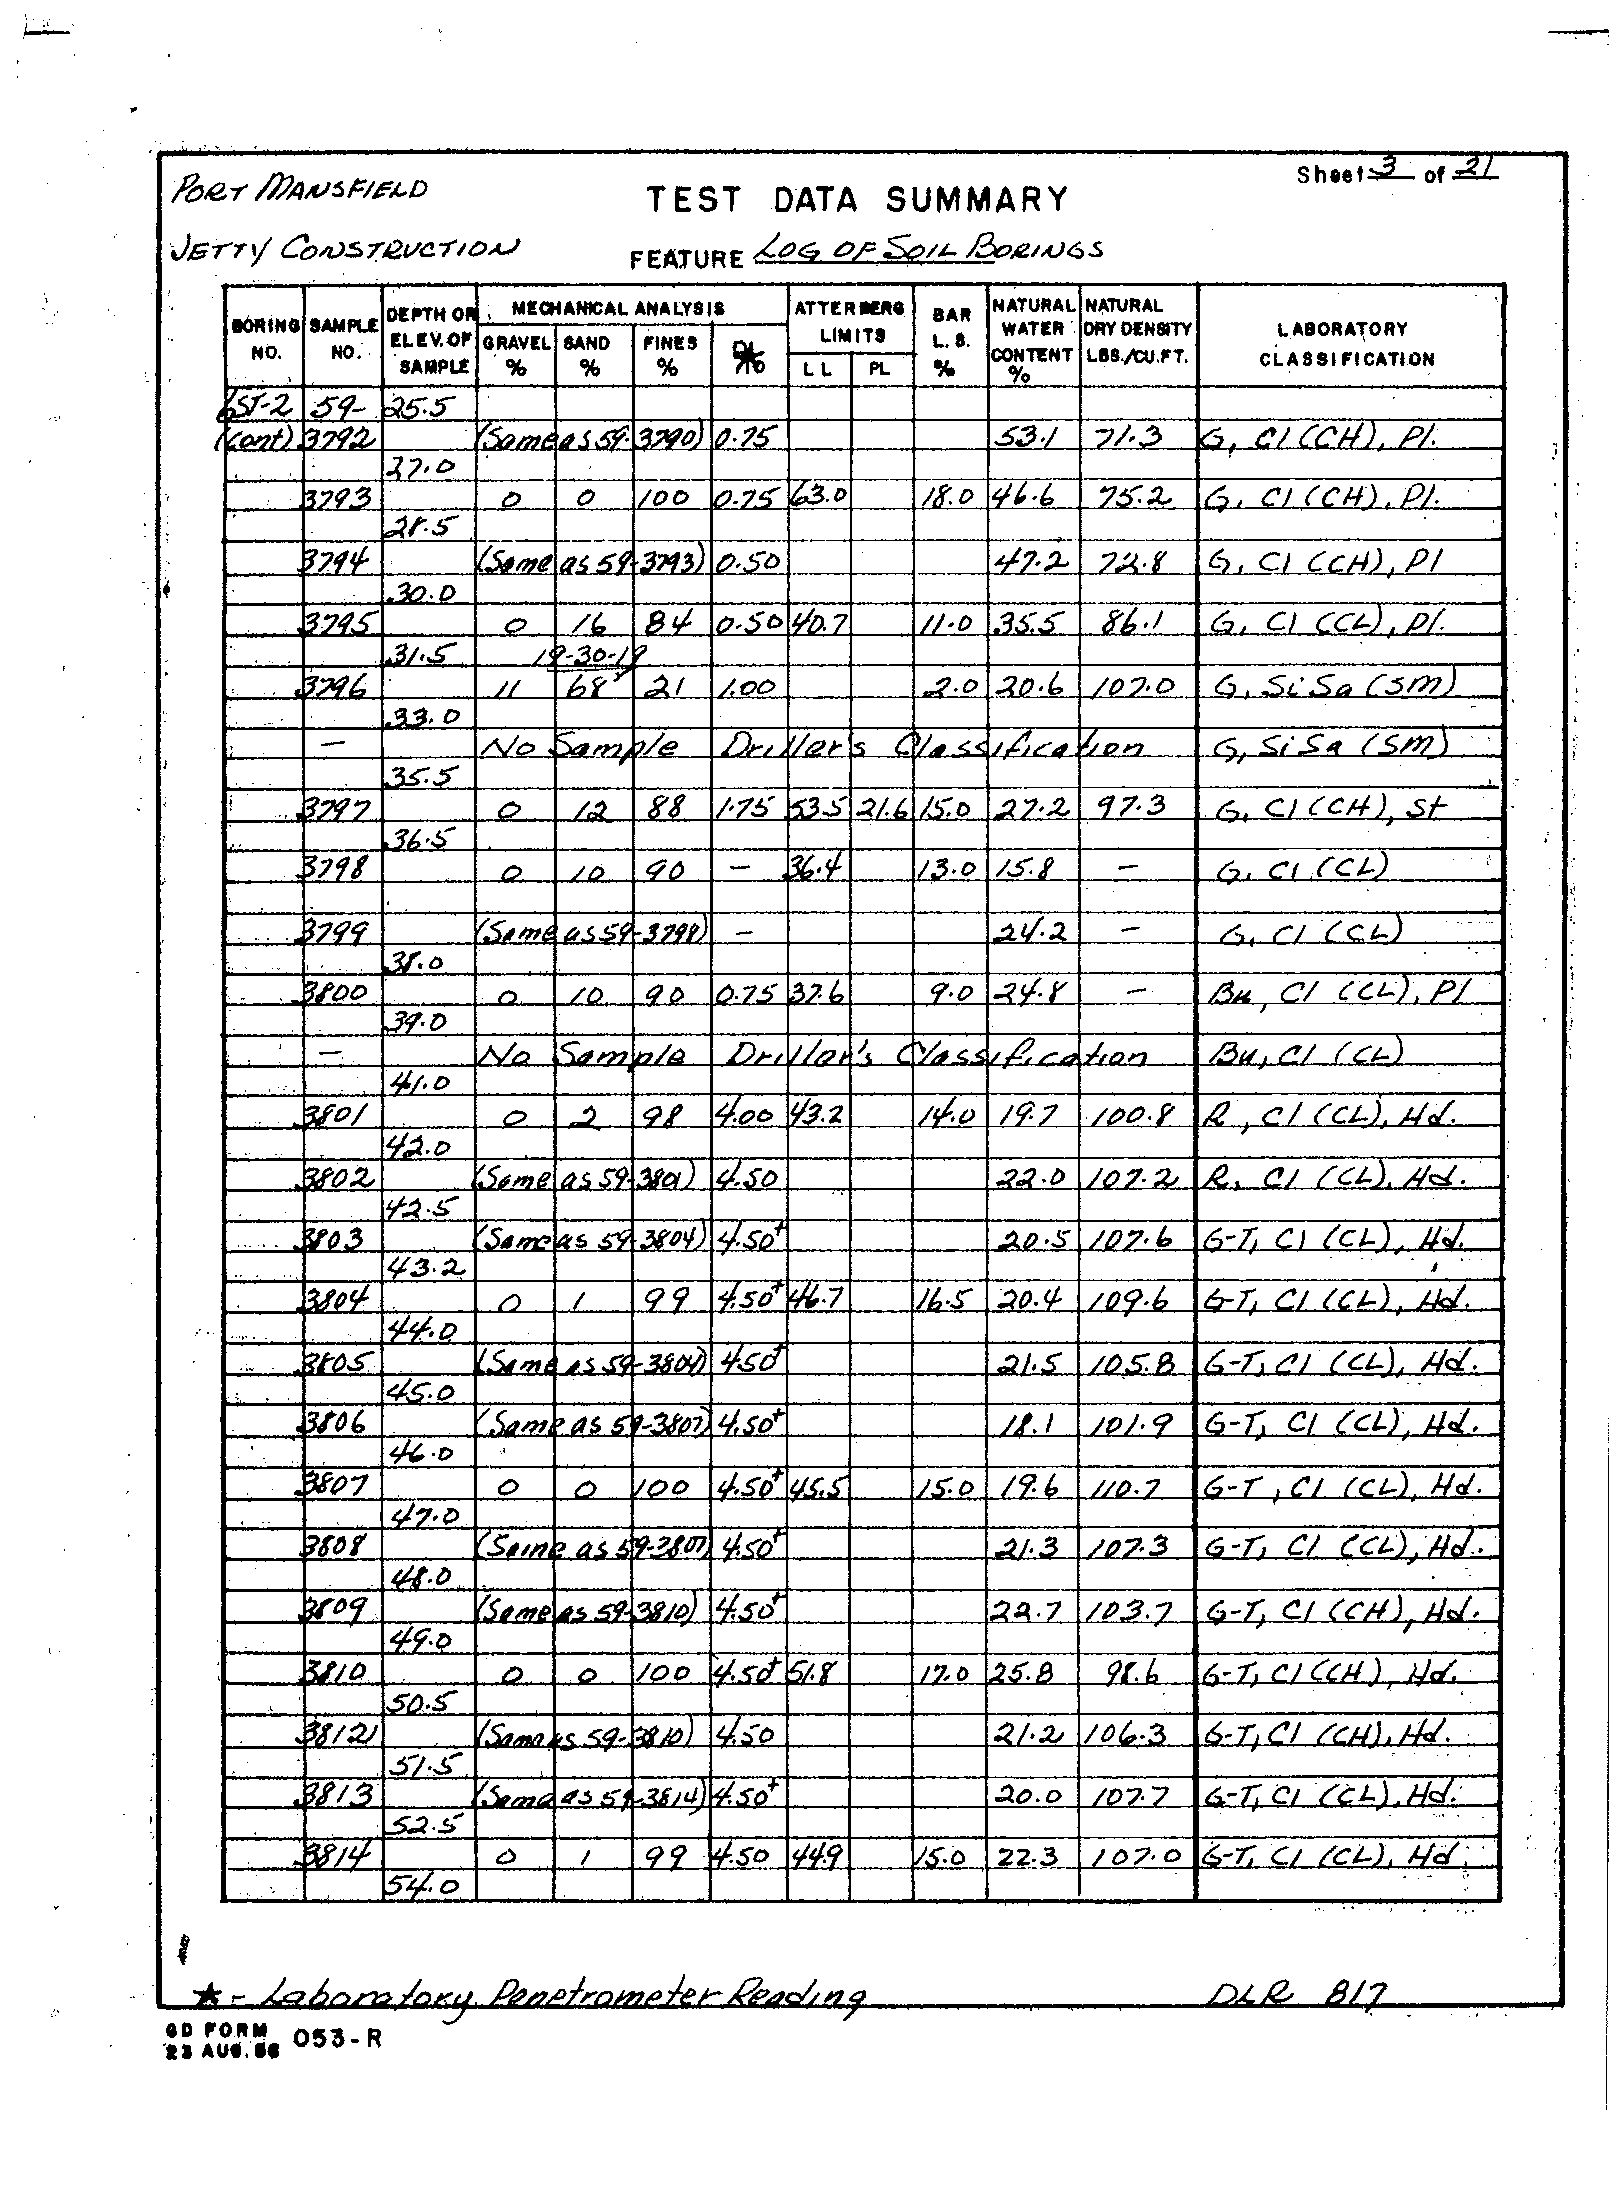 Sheet 3 of 21
PORT MANSFIELD
TEST DATA SUMMARY
JETTY CONSTRUCTION
FEATURE LOG OF SOIL BORINGS
BORING NO. SAMPLE NO. DEPTH OR ELEV. OF SAMPLE MECHANICAL ANALYSIS GRAVEL % SAND % FINES % ATTERBERG LIMITS LL PL BAR L.S. % NATURAL WATER CONTENT % NATURAL DRY DENSITY LBS./CU.FT. LABORATORY CLASSIFICATION
6ST-2 59- 25.5
(cont) 3792 (Same as 59-3790) 0.75 53.1 71.3 G, Cl (CH), Pl.
27.0
3793 0 0 100 0.75 63.0 18.0 46.6 75.2 G, Cl (CH), Pl.
28.5
3794 (Same as 59-3793) 0.50 47.2 72.8 G, Cl (CH), Pl
30.0
3795 0 16 84 0.50 40.7 11.0 35.5 86.1 G, Cl (CL), Pl.
31.5 19-30-19
3796 11 68 21 1.00 2.0 20.6 107.0 G, SiSa (SM)
33.0
— No Sample Driller's Classification G, SiSa (SM)
35.5
3797 0 12 88 1.75 53.5 21.6 15.0 27.2 97.3 G, Cl (CH), St
36.5
3798 0 10 90 — 36.4 13.0 15.8 — G, Cl (CL)
3799 (Same as 59-3798) — 24.2 — G, Cl (CL)
38.0
3800 0 10 90 0.75 37.6 9.0 24.8 — Bu, Cl (CL), Pl
39.0
— No Sample Driller's Classification Bu, Cl (CL)
41.0
3801 0 2 98 4.00 43.2 14.0 19.7 100.8 R, Cl (CL), Hd.
42.0
3802 (Same as 59-3801) 4.50 22.0 107.2 R, Cl (CL), Hd.
42.5
3803 (Same as 59-3804) 4.50+ 20.5 107.6 G-T, Cl (CL), Hd.
43.2
3804 0 1 99 4.50+ 46.7 16.5 20.4 109.6 G-T, Cl (CL), Hd.
44.0
3805 (Same as 59-3804) 4.50+ 21.5 105.8 G-T, Cl (CL), Hd.
45.0
3806 (Same as 59-3807) 4.50+ 18.1 101.9 G-T, Cl (CL), Hd.
46.0
3807 0 0 100 4.50+ 45.5 15.0 19.6 110.7 G-T, Cl (CL), Hd.
47.0
3808 (Same as 59-3807) 4.50+ 21.3 107.3 G-T, Cl (CL), Hd.
48.0
3809 (Same as 59-3810) 4.50+ 22.7 103.7 G-T, Cl (CH), Hd.
49.0
3810 0 0 100 4.50+ 51.8 17.0 25.8 98.6 G-T, Cl (CH), Hd.
50.5
3812 (Same as 59-3810) 4.50 21.2 106.3 G-T, Cl (CH), Hd.
51.5
3813 (Same as 59-3814) 4.50+ 20.0 107.7 G-T, Cl (CL), Hd.
52.5
3814 0 1 99 4.50 44.9 15.0 22.3 107.0 G-T, Cl (CL), Hd.
54.0
★ - Laboratory Penetrometer Reading DLR 817
GD FORM 053-R
23 AUG. 56